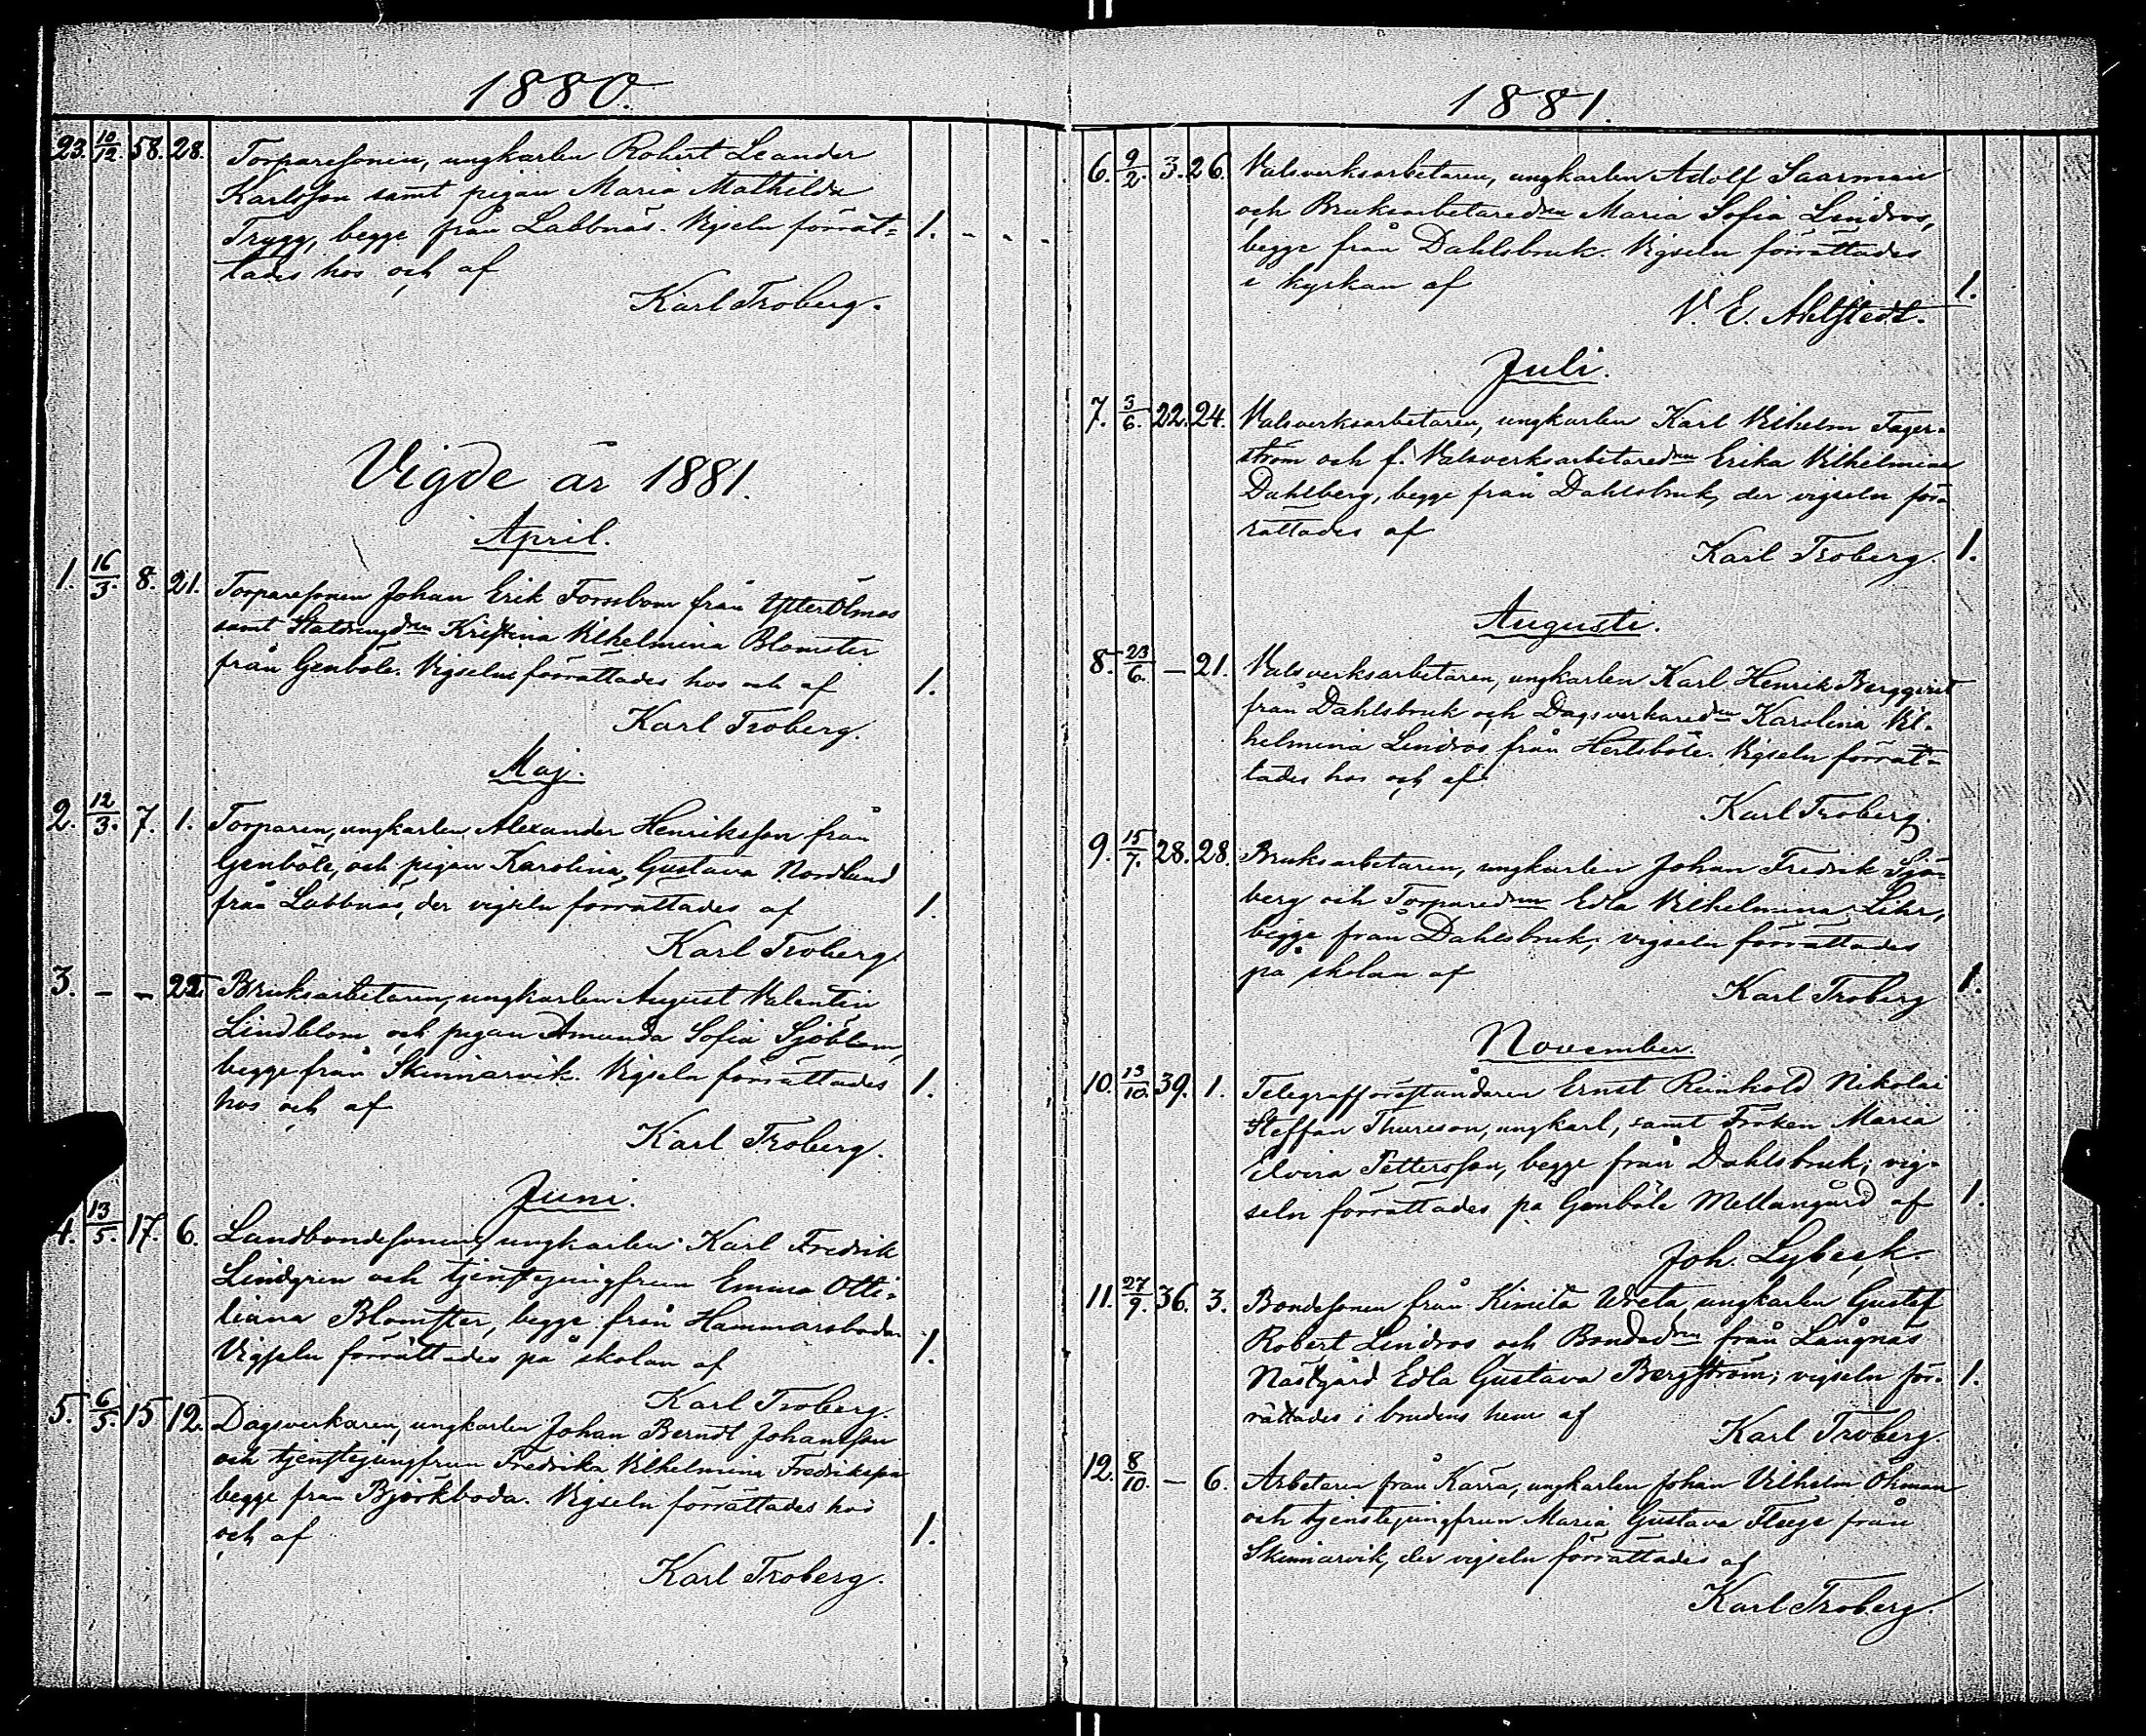 1880.
23. 10/12. 58. 28. Torparesonen, ungkarlen Robert Leander
Karlsson samt pigan Maria Mathilda
Trygg, begge från Labbnäs. Vigseln förrät- 1. - - -
tades hos och af
Karl Troberg.
Vigde år 1881.
April.
1. 16/3. 8. 21. Torparesonen Johan Erik Forssbom från Ytterölmos
samt Statdrengdrn Kristina Vilhelmina Blomster
från Genböle. Vigseln förrättades hos och af 1.
Karl Troberg.
Maj.
2. 12/3. 7. 1. Torparen, ungkarlen Alexander Henriksson från
Genböle, och pigan Karolina Gustava Nordlund
från Labbnäs, der vigseln förrättades af 1.
Karl Troberg.
3. - - 22. Bruksarbetaren, ungkarlen August Valentin
Lindblom och pigan Amanda Sofia Sjöblom,
begge från Skinnarvik. Vigseln förrättades 1.
hos och af
Karl Troberg.
Juni.
4. 13/5. 17. 6. Landbondesonen, ungkarlen Karl Fredrik
Lindgren och tjenstejungfrun Emma Otti-
liana Blomster, begge från Hammarsboda.
Vigseln förrättades på skolan af 1.
Karl Troberg.
5. 6/5. 15 12. Dagsverkaren, ungkarlen Johan Berndt Johansson
och tjenstejungfrun Fredrika Vilhelmina
begge från Björkboda. Vigseln förrättades hos
och af 1.
Karl Troberg.
1881.
6. 9/2. 3. 26. Valsverksarbetaren, ungkarlen Adolf Saarman
och Bruksarbetaredrn Maria Sofia Lindros,
begge från Dahlsbruk. Vigseln förrättades
i kyrkan af 1.
V. E. Ahlstedt.
Juli.
7. 3/6. 22. 24. Valsverksarbetaren, ungkarlen Karl Vilhelm Fager-
ström och f. Valsverksarbetaredrn Erika Vilhelmina
Dahlberg, begge från Dahlsbruk, der vigseln för-
rättades af
Karl Troberg. 1.
Augusti.
8. 23/6. - 21. Valsverksarbetaren, ungkarlen Karl Henrik Bergqvist
från Dahlsbruk och Dagsverkaredrn Karolina Vil-
helmina Lindros från Hertsböle. Vigseln förrät-
tades hos och af
Karl Troberg.
9. 15/7. 28. 28. Bruksarbetaren, ungkarlen Johan Fredrik Sjö-
berg och Torparedrn Edla Vilhelmina Lihr,
begge från Dahlsbruk; vigseln förrättades
på skolan af 1.
Karl Troberg
November.
10. 13/10. 39. 1. Telegrafföreståndaren Ernst Reinhold Nikolai
Steffan Thureson, ungkarl, samt Fröken Maria
Elvira Pettersson, begge från Dahlsbruk; vig-
seln förrättades på Genböle Mellangård af 1.
Joh. Lybeck.
11. 27/9. 36. 3. Bondesonen från Kimito Wreta, ungkarlen Gustaf
Robert Lindros och Bondedrn från Långnäs
Nästgård Edla Gustava Bergström; vigseln för- 1.
rättades i brudens hem af
Karl Troberg.
12. 8/10. - 6. Arbetaren från Kärra, ungkarlen Johan Vilhelm Öhman
och tjenstejungfrun Maria Gustava Flege från
Skinnarvik, der vigseln förrättades af
Karl Troberg.